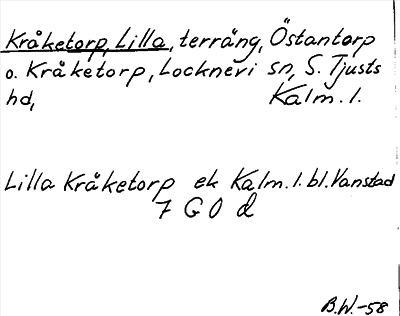 Kråketorp, Lilla, terräng, Östantorp
o. Kråketorp, Locknevi sn, S. Tjusts
hd, Kalm. l.
Lilla Kråketorp ek Kalm. l. bl. Vanstad
7 G 0 d
B.W.-58